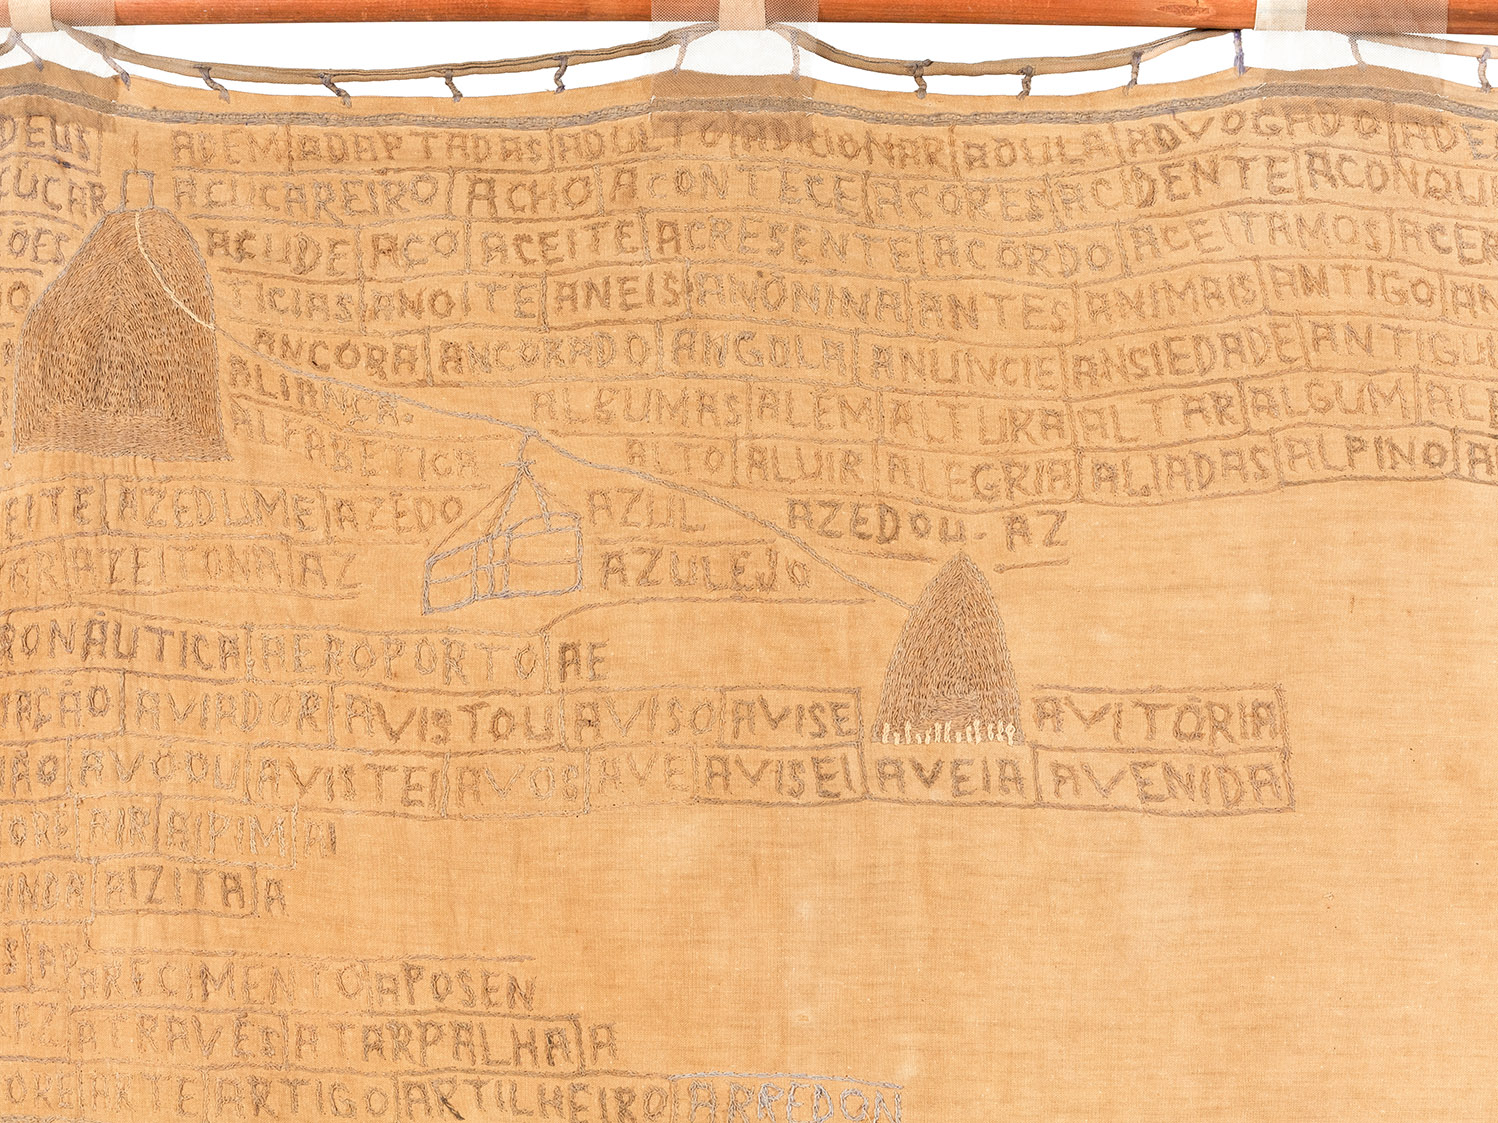 DEUS ACEM ADAPTADAS ADULTO ADICIONAR ADULA ADVOGADO
AÇUCAREIRO ACHO ACONTECE AÇORES ACIDENTE
AÇUDE AÇO ACEITE ACRESENTE ACÔRDO ACEITAMOS
TICIAS ANOITE ANEIS ANÔNINA ANTES ANIMAIS ANTIGO
ANCORA ANCORADO ANGOLA ANUNCIE ANSIEDADE
ALIANÇA. ALGUMAS ALEM ALTURA ALTAR ALGUM
ALFABETICA ALTO ALUIR ALEGRIA ALIADAS ALPINO
EITE AZEDUME AZÊDO AZUL AZEDOU- AZ
AZEITONA AZ AZULEJO
RONÁUTICA AEROPORTO AE
AÇÃO AVIADOR AVISTOU AVISO AVISE AVITÓRIA
ÃO AVÔOU AVISTEI AVÓS AVE AVISEI AVEIA AVENIDA
AIR AIPIM AI
AIZITA A
APARECIMENTO APOSEN
ATRAVÉS ATARPALHA A
ARTE ARTIGO ARTILHEIRO ARREDON